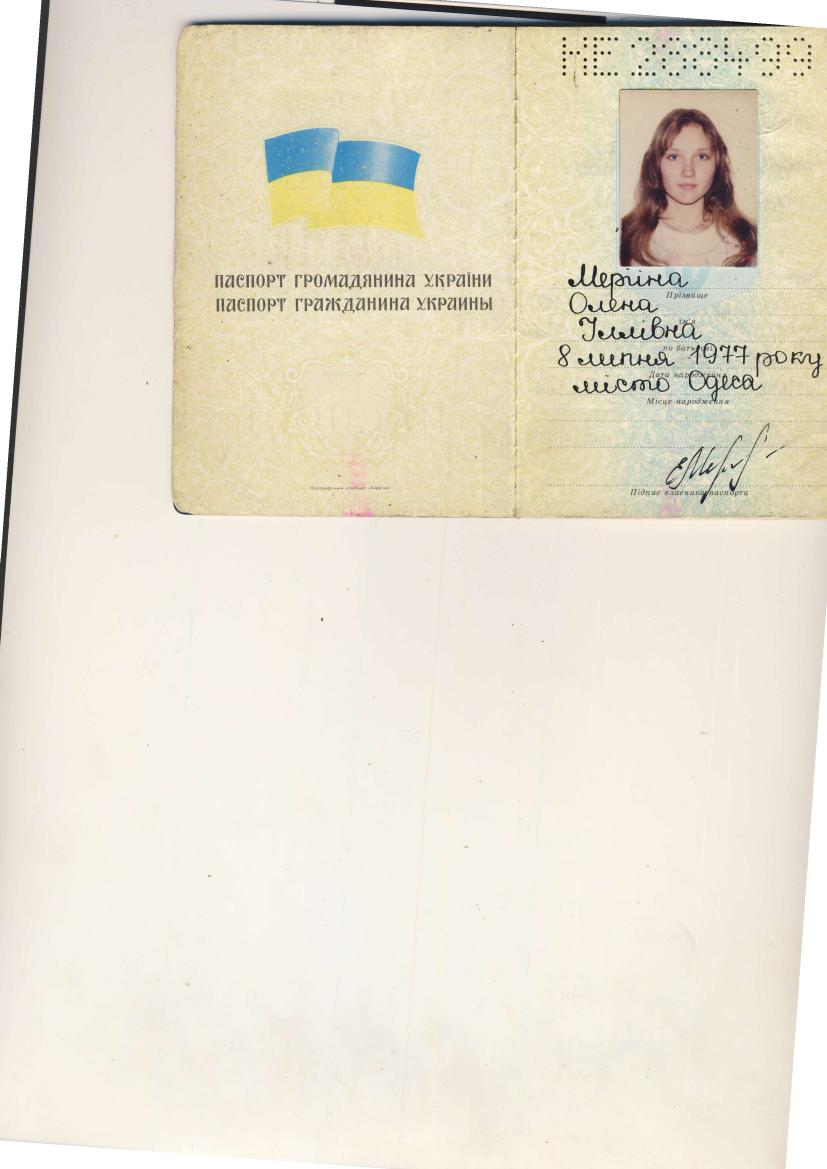 ПАСПОРТ ГРОМАДЯНИНА УКРАЇНИ
ПАСПОРТ ГРАЖДАНИНА УКРАИНЫ
НЕ 288499
Прізвище
Олена
ім'я
Іллівна
по батькові
8 липня 1977 року
Дата народження
місто Одеса
Місце народження
Підпис власника паспорта